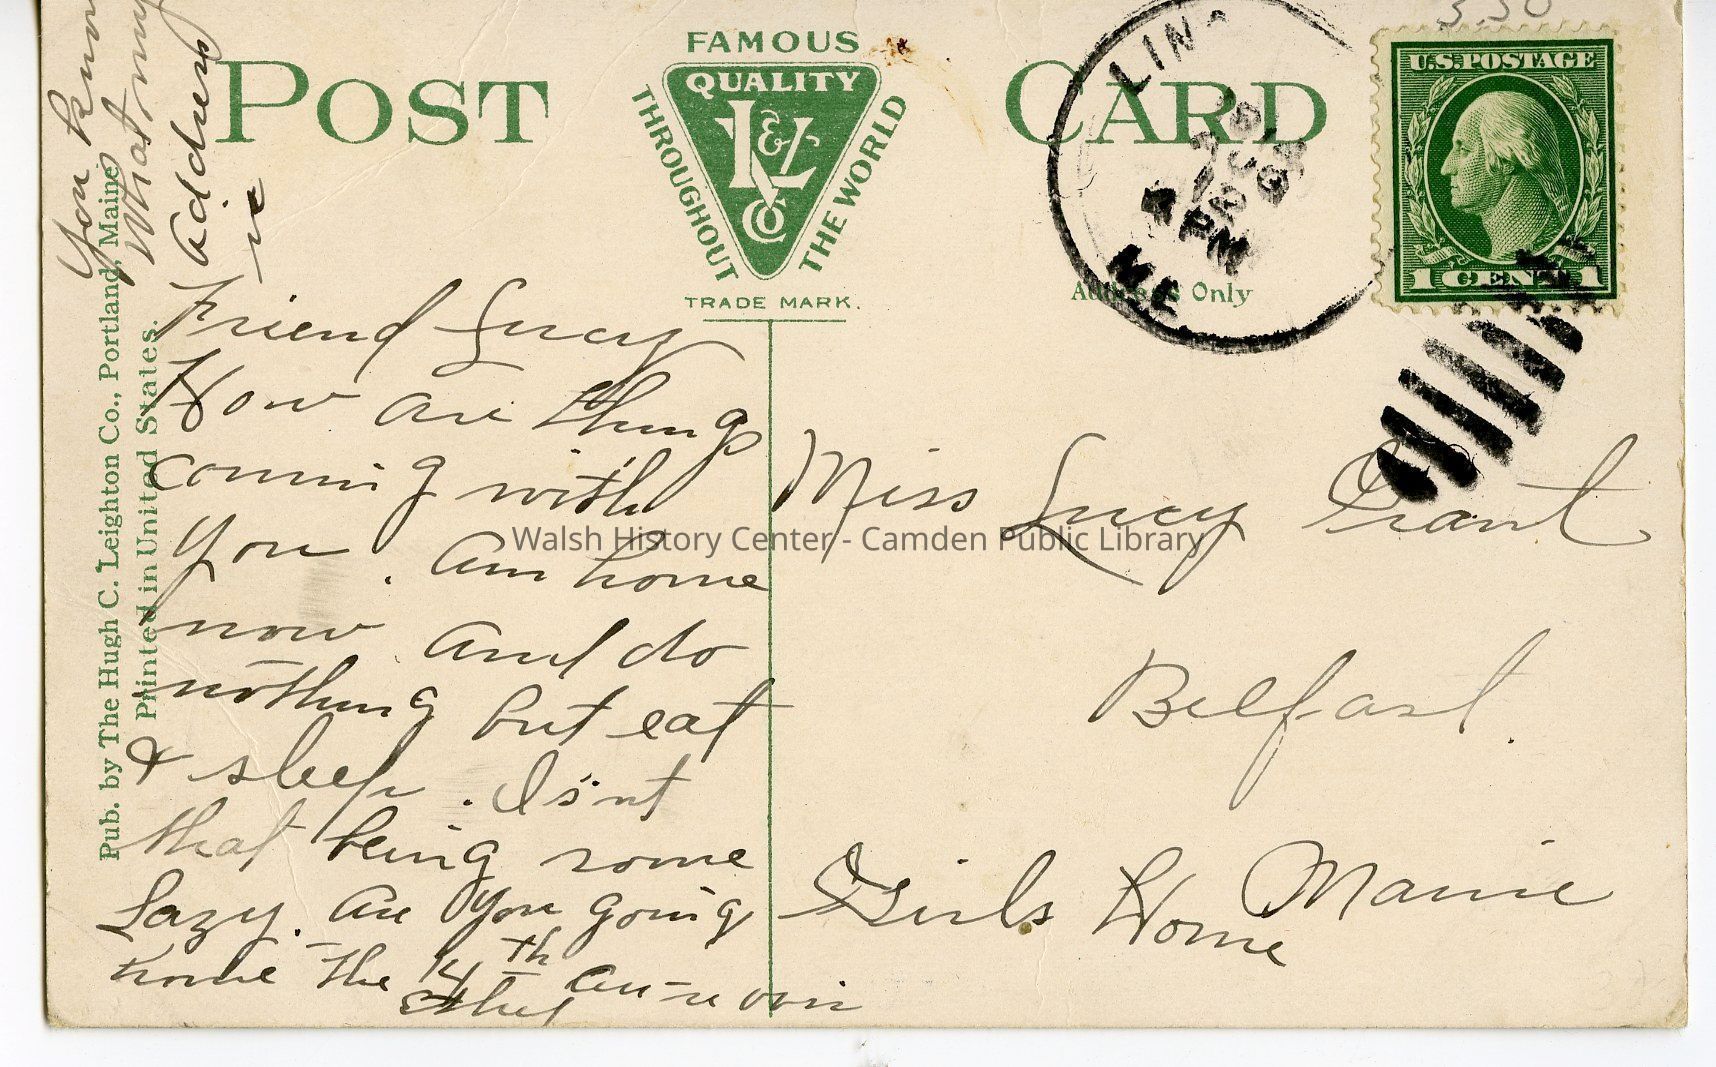 3 50
FAMOUS
POST CARD
QUALITY
H L
& Co
THROUGHOUT
THE WORLD
TRADE MARK.
Address Only
U.S. POSTAGE
1 CENT 1
LINC
AUG
PM
ME
You know
what my
address
is
Pub. by The Hugh C. Leighton Co., Portland, Maine
Printed in United States.
Friend Lucy
How are things
coming with
you. Am home
now and do
nothing but eat
& sleep. Is'nt
that being some
Lazy. Are you going
home the 14th Au-re voir
Ethel
Miss Lucy Grant
Belfast.
Girls Home Maine
Walsh History Center - Camden Public Library